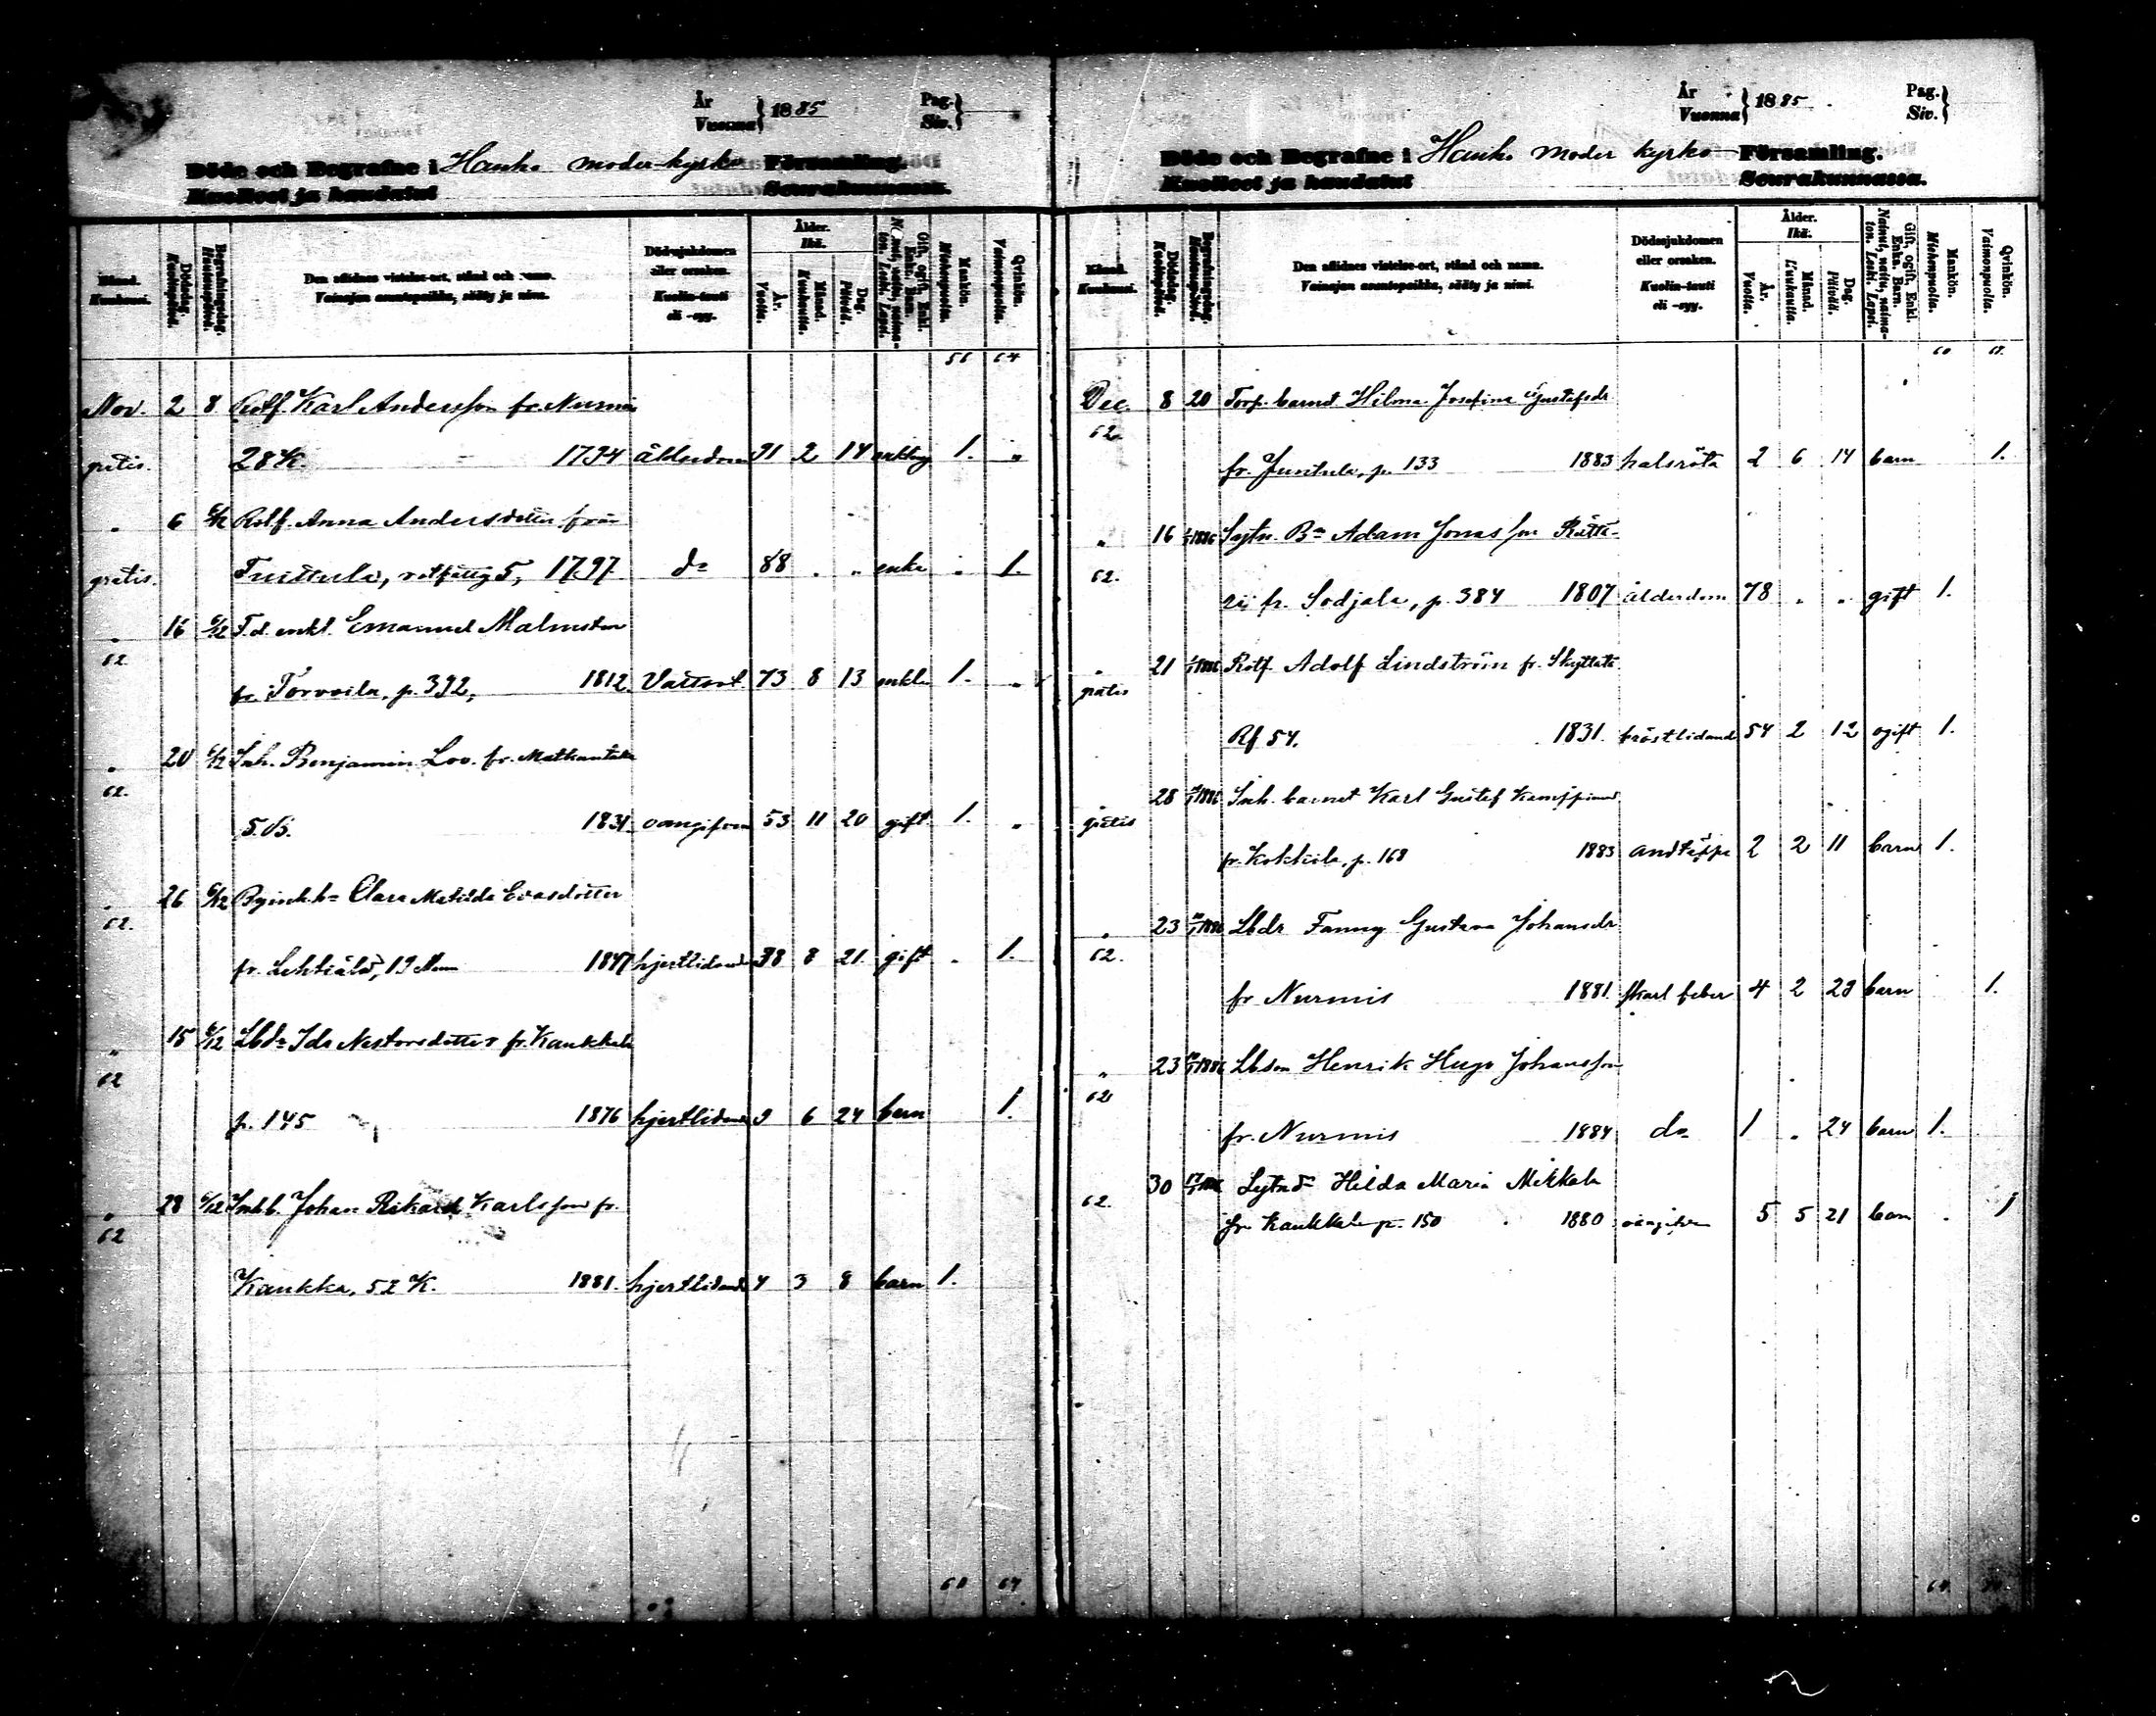 År
Vuonna } 1885
Pag.
Siv. }
Döde och Begrafne i Hauho moder-kyrko Församling.
Kuolleet ja haudatut Seurakunnassa.
Månad. Kuukausi.
Dödsdag. Kuolinpäivä.
Begrafningsdag. Hautauspäivä.
Den aflidnes vistelse-ort, stånd och namn.
Vainajan asuntopaikka, sääty ja nimi.
Dödssjukdomen eller orsaken.
Kuolin-tauti eli -syy.
Ålder. Ikä.
År. Vuotta.
Månad. Kuukautta.
Dag. Päivää.
Gift, ogift, Enkl. Enka. Barn.
Nainut, naitu, naimaton. Leski. Lapsi.
Mankön. Miehenpuolta.
Qvinkön. Vaimonpuolta.
56 64
Nov. 2 8 Rotf. Karl Andersson fr. Nurmis
gratis. 28 K. 1794 ålderdom 91 2 14 enkling 1. "
" 6 6/12 Rotf. Anna Andersdotter från
gratis. Tuittula, rotfattig 5, 1797. do 88 " " enka " 1.
" 16 6/12 F.d. enkl. Emanuel Malmsten
62. fr. Torvoila, p. 392, 1812. Vattsot. 73 8 13 enkl. 1. "
" 20 6/12 Inh. Benjamin Lov. fr.
62. 5.B. 1831 53 11 20 gift. 1. "
" 26 6/12 Clara Matilda Evasdotter
62. fr. 19 1847 hjertlidande 38 8 21 gift " 1.
" 15 6/12 Lbdr Ida Nestorsdotter fr. Kaukkala
62 p. 145 1876 hjertlidande 9 6 24 barn 1.
" 28 6/12 Inhb. Johan Rikard Karlsson fr.
62 Kaukka, 52 K. 1881. hjertlidande 4 3 8 barn 1.
60 67
År
Vuonna } 1885
Pag.
Siv. }
Döde och Begrafne i Hauho moder kyrko Församling.
Kuolleet ja haudatut Seurakunnassa.
Månad. Kuukausi.
Dödsdag. Kuolinpäivä.
Begrafningsdag. Hautauspäivä.
Den aflidnes vistelse-ort, stånd och namn.
Vainajan asuntopaikka, sääty ja nimi.
Dödssjukdomen eller orsaken.
Kuolin-tauti eli -syy.
Ålder. Ikä.
År. Vuotta.
Månad. Kuukautta.
Dag. Päivää.
Gift, ogift, Enkl. Enka. Barn.
Nainut, naitu, naimaton. Leski. Lapsi.
Mankön. Miehenpuolta.
Qvinkön. Vaimonpuolta.
60 67.
Dec. 8 20 Torp. barnet Hilma Josefina Gustafsdr
62. fr. p. 133 1883 halsröta 2 6 14 barn 1.
" 16 1886 Adam Jonasson
62. fr. Sodjala, p. 384 1807 ålderdom 78 " " gift 1.
" 21 1886 Rotf. Adolf Lindström fr. Skyttälä
gratis Rf 54. 1831. bröstlidande 54 2 12 ogift 1.
" 28 1886 Inh. barnet Karl Gustaf
gratis fr. Kokkila, p. 168 1883 andtäppa 2 2 11 barn 1.
" 23 1886 Lbdr Fanny Gustava Johansdr
62. fr Nurmis 1881. skarl feber 4 2 23 barn 1.
" 23 1886 Lbson Henrik Hugo Johansson
62 fr. Nurmis 1884 do 1 " 24 barn 1.
30 Hilda Maria Mikkola
62. fr Kaukkala p. 150 1880 5 5 21 barn " 1
64